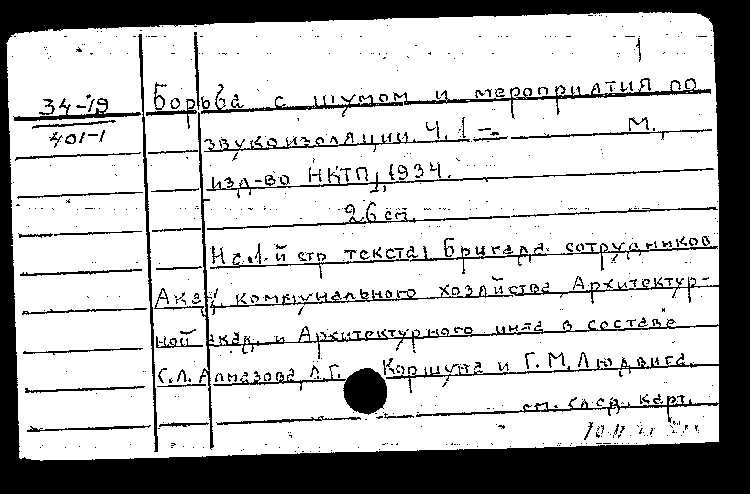 1
34-19
401-1
Борьба с шумом и мероприятия по
звукоизоляции. Ч. 1 –. М.,
изд-во НКТП, 1934.
26 см.
На 1-й стр текста: Бригада сотрудников
Акад. коммунального хозяйства, Архитектур-
ной акад. и Архитектурного инта в составе
С.Л. Алмазова, Л.Г. Коршуна и Г.М. Людвига.
см. след. карт.